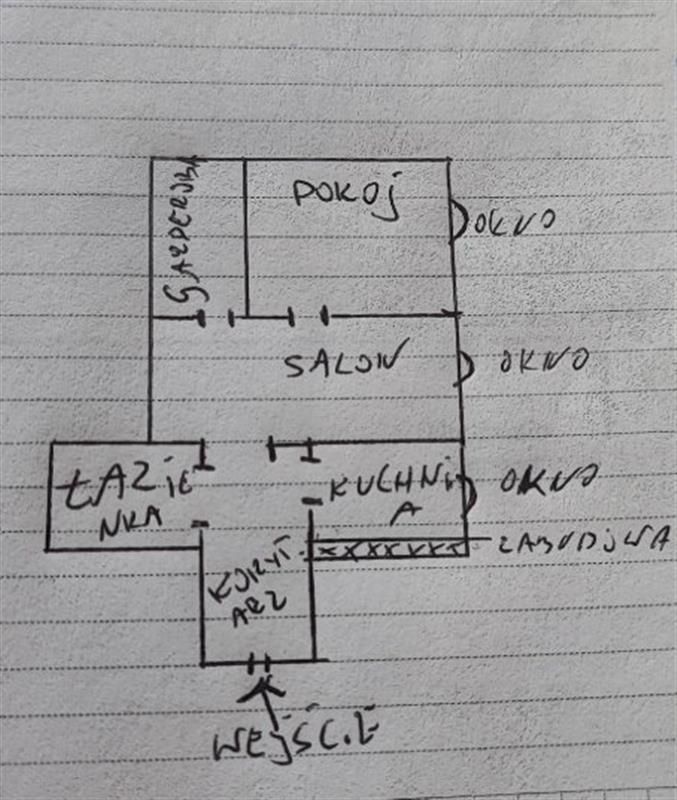 GARDEROBA
POKOJ
OKNO
SALON
OKNO
ŁAZIE
NKA
KUCHNI
A
OKNO
ZABUDOWA
KORYT
ARZ
WEJŚCIE